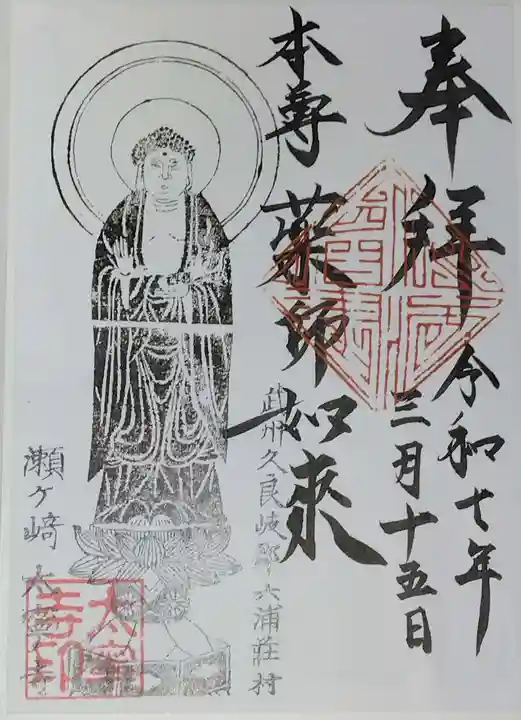 奉拝
令和七年
三月十五日
本尊 薬師如来
武州久良岐郡六浦荘村
瀬ヶ﨑 太寧寺
太寧寺印